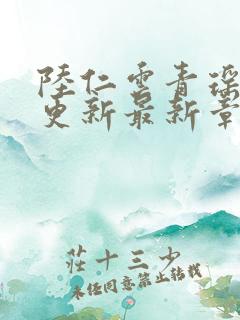 陸仁雲青瑶
更新最新章
莊十三少
未经同意禁止转载